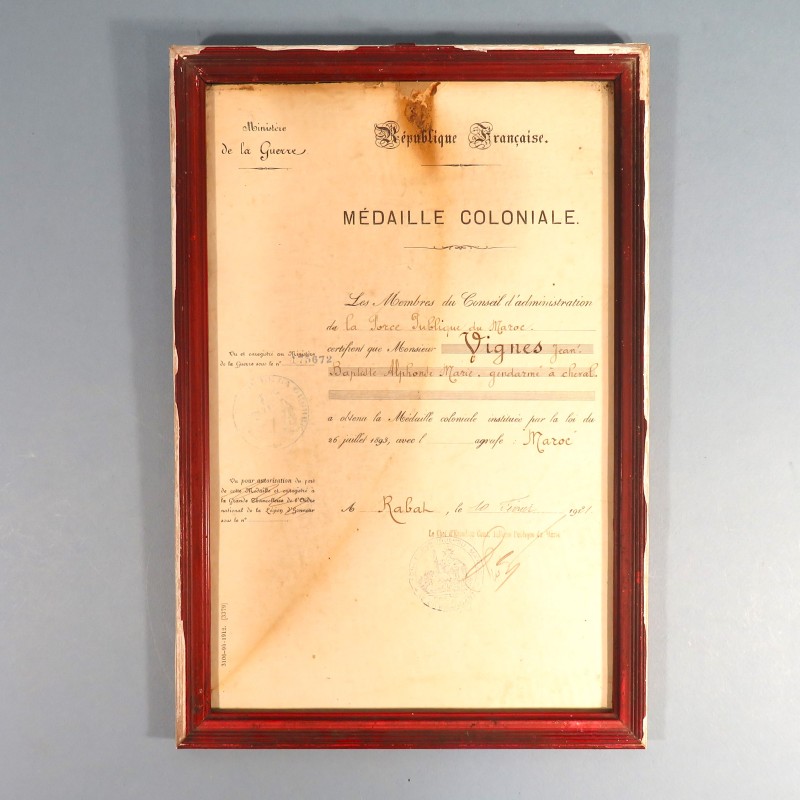 Ministère
de la Guerre
République Française.
MÉDAILLE COLONIALE.
Les Membres du Conseil d'administration
de la Force Publique du Maroc.
certifient que Monsieur Vignes Jean
Baptiste Alphonse Marie, gendarme à cheval
a obtenu la Médaille coloniale instituée par la loi du
26 juillet 1893, avec l' agrafe : Maroc
A Rabat, le 10 1921
Vu et enregistré au Ministère
de la Guerre sous le n°
Vu pour autorisation du port
de cette Médaille et enregistré à
la Grande Chancellerie de l'Ordre
national de la Légion d'Honneur
sous le n°